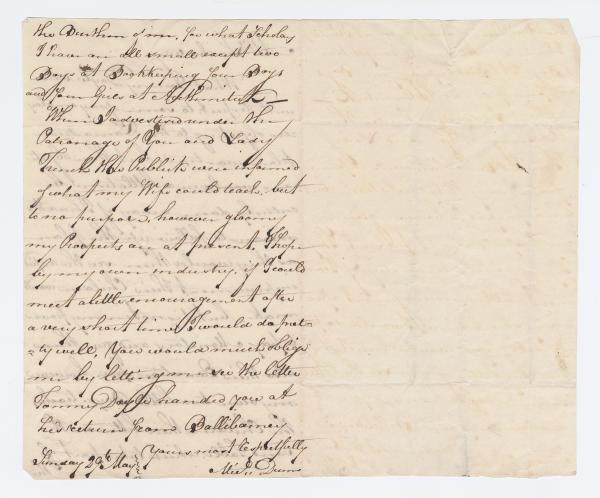 the Burthen of me, for what Scholars
I have are all small except two
Boys at Bookkeeping four Boys
and four Girls at Arithmetick —
When I advertised under the
Patronage of You and Lady
Trench the Publick were informed
of what my Wife could teach, but
to no purpose, however gloomy
my Prospects are at present, I hope
by my own industry, if I could
meet a little encouragement after
a very short time I would do pret-
-ty well, You would much oblige
me by letting me see the letter
Tommy Doyle handed you at
his return from
Yours most respectfully
Sunday 29th May
Michl. Dunn